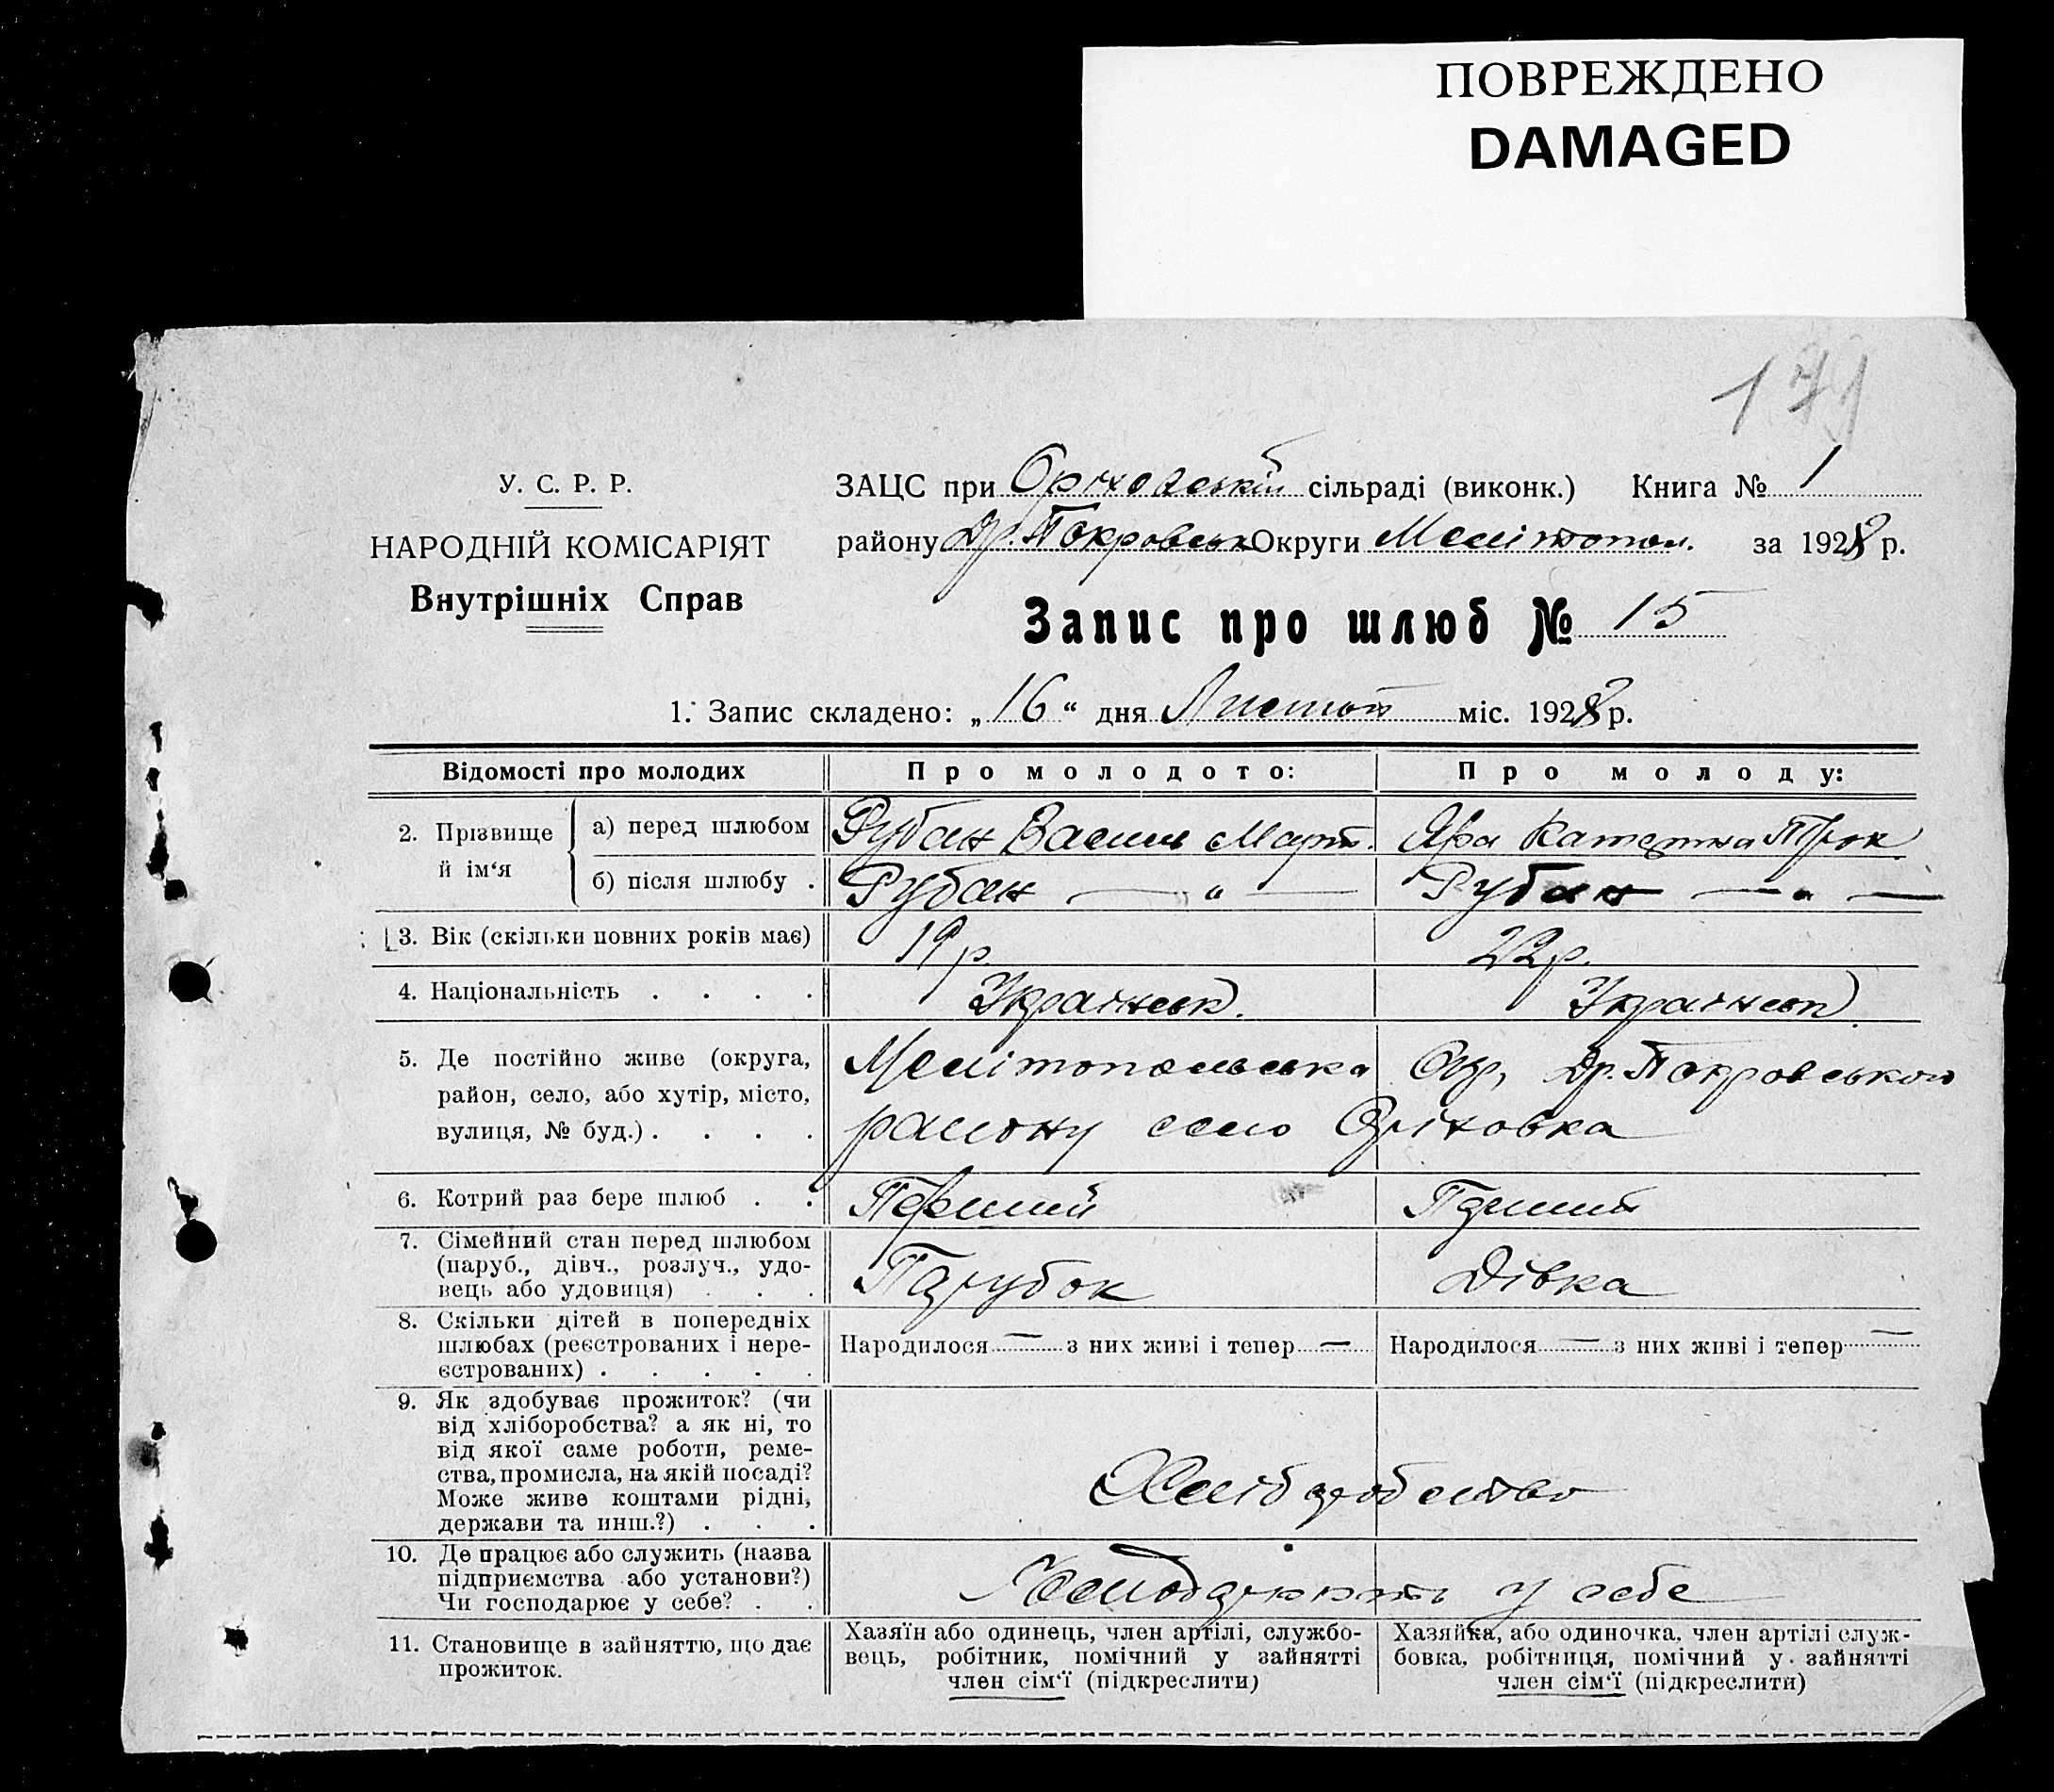 ПОВРЕЖДЕНО
DAMAGED
171
У. С. Р. Р.
НАРОДНІЙ КОМІСАРІЯТ
Внутрішніх Справ
ЗАЦС при Оріховській сільраді (виконк.) Книга № 1
району Др. Покровськ Округи Мелітопол. за 1928 р.
Запис про шлюб № 15
1. Запис складено: „16“ дня Листоп міс. 1928 р.
Відомості про молодих Про молодого: Про молоду:
2. Прізвище й ім‘я
а) перед шлюбом Рубан Василь Март. Яра Катерина Прок
б) після шлюбу . Рубан — „ — Рубан — „ —
3. Вік (скільки повних років має) 19 р. 22 р.
4. Національність . . . . Українськ. Українськ.
5. Де постійно живе (округа, район, село, або хутір, місто, вулиця, № буд.) . . . .
Мелітопольська Окр, Др. Покровського
району село Оріховка
6. Котрий раз бере шлюб . . Перший Перший
7. Сімейний стан перед шлюбом
(паруб., дівч., розлуч., удо-
вець або удовиця) . . . Парубок Дівка
8. Скільки дітей в попередніх
шлюбах (реєстрованих і нере-
єстрованих) . . . . .
Народилося — з них живі і тепер — Народилося — з них живі і тепер —
9. Як здобуває прожиток? (чи
від хліборобства? а як ні, то
від якої саме роботи, реме-
ства, промисла, на якій посаді?
Може живе коштами рідні,
держави та инш.?) . . .
Хліборобство
10. Де працює або служить (назва
підприємства або установи?)
Чи господарює у себе? . .
у себе
11. Становище в зайняттю, що дає
прожиток.
Хазяїн або одинець, член артілі, службо-
вець, робітник, помічний у зайнятті
член сім‘ї (підкреслити)
Хазяйка, або одиночка, член артілі служ-
бовка, робітниця, помічний у зайнятті
член сім‘ї (підкреслити)